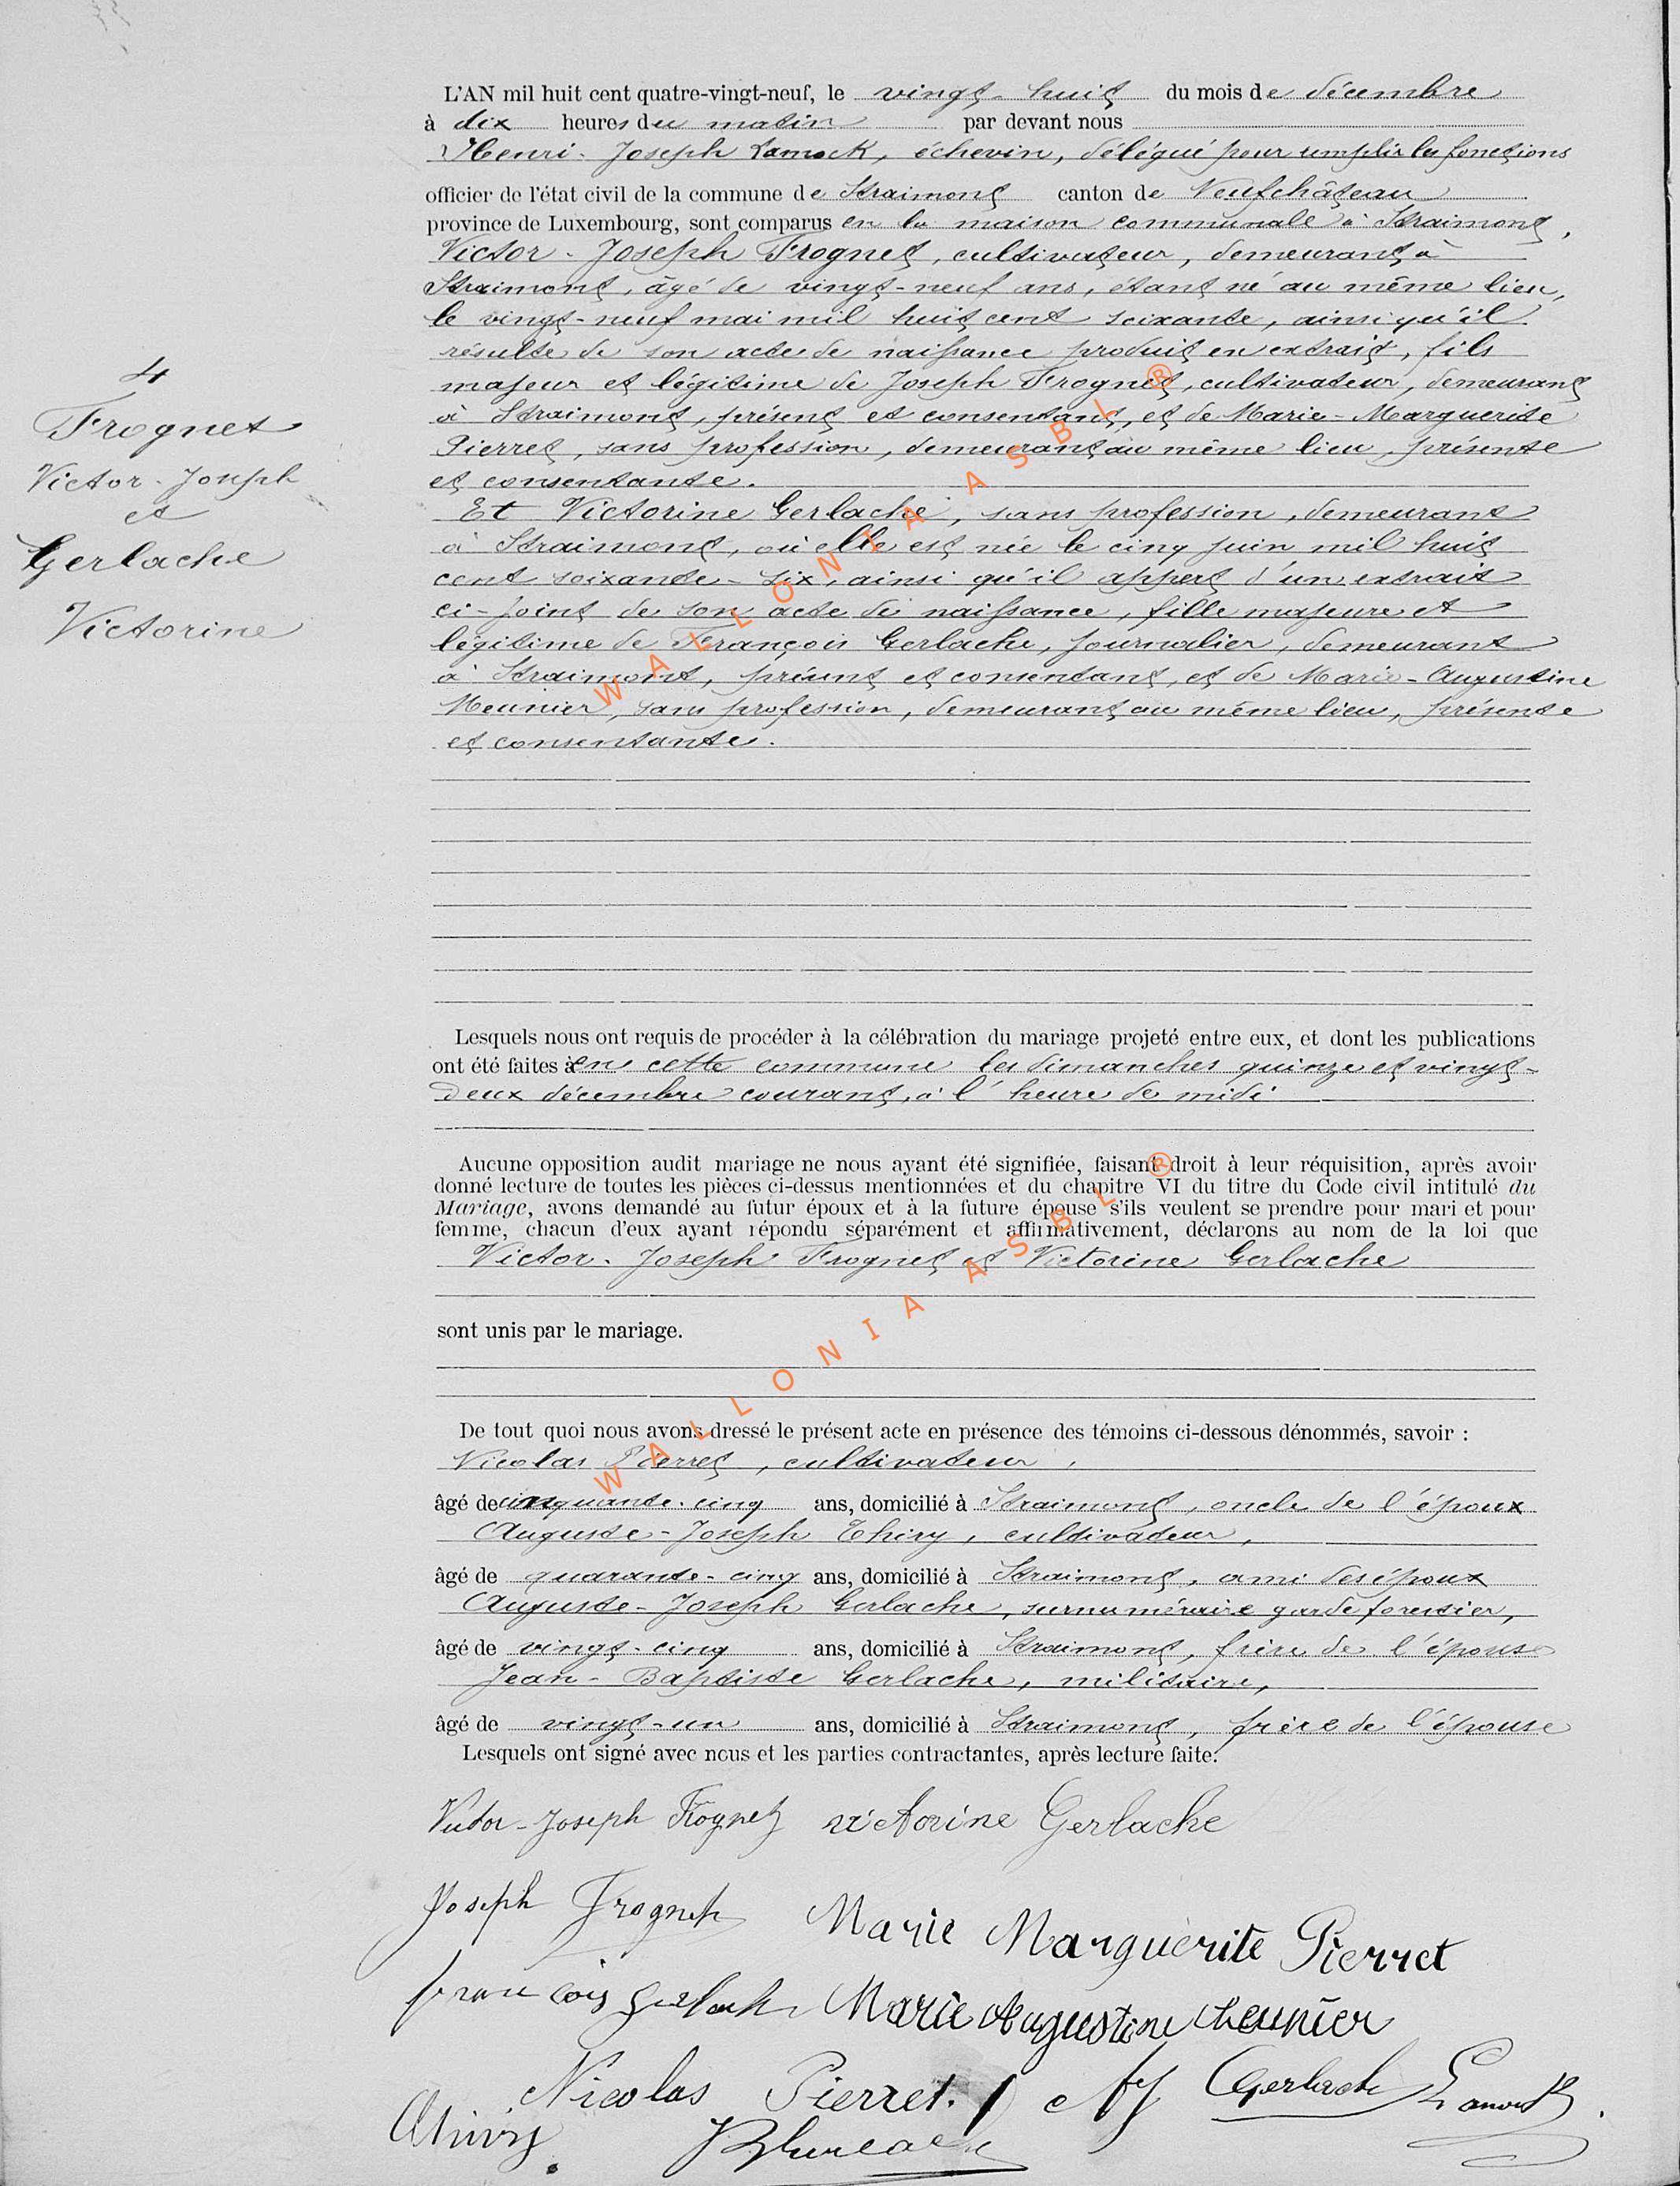 L'AN mil huit cent quatre-vingt-neuf, le vingt-huit du mois de décembre
à dix heures du matin par devant nous
Henri-Joseph Lamock, échevin, délégué pour remplir les fonctions
officier de l'état civil de la commune de Straimont canton de Neufchâteau
province de Luxembourg, sont comparus en la maison communale à Straimont,
Victor-Joseph Frognet, cultivateur, demeurant à
Straimont, âgé de vingt-neuf ans, étant né au même lieu,
le vingt-neuf mai mil huit cent soixante, ainsi qu'il
résulte de son acte de naissance produit en extrait, fils
majeur et légitime de Joseph Frognet, cultivateur, demeurant
à Straimont, présent et consentant, et de Marie-Marguerite
Pierret, sans profession, demeurant au même lieu, présente
et consentante.
4
Frognet
Victor-Joseph
et
Gerlache
Victorine
Et Victorine Gerlache, sans profession, demeurant
à Straimont, où elle est née le cinq juin mil huit
cent soixante-six, ainsi qu'il appert d'un extrait
ci-joint de son acte de naissance, fille majeure et
légitime de François Gerlache, journalier, demeurant
à Straimont, présent et consentant, et de Marie-Augustine
Meunier, sans profession, demeurant au même lieu, présente
et consentante.
Lesquels nous ont requis de procéder à la célébration du mariage projeté entre eux, et dont les publications
ont été faites à en cette commune les dimanches quinze et vingt-
deux décembre courant, à l'heure de midi
Aucune opposition audit mariage ne nous ayant été signifiée, faisant droit à leur réquisition, après avoir
donné lecture de toutes les pièces ci-dessus mentionnées et du chapitre VI du titre du Code civil intitulé du
Mariage, avons demandé au futur époux et à la future épouse s'ils veulent se prendre pour mari et pour
femme, chacun d'eux ayant répondu séparément et affirmativement, déclarons au nom de la loi que
Victor-Joseph Frognet et Victorine Gerlache
sont unis par le mariage.
De tout quoi nous avons dressé le présent acte en présence des témoins ci-dessous dénommés, savoir :
Nicolas Pierret, cultivateur,
âgé de cinquante-cinq ans, domicilié à Straimont, oncle de l'époux
Auguste-Joseph Thiry, cultivateur,
âgé de quarante-cinq ans, domicilié à Straimont, ami des époux
Auguste-Joseph Gerlache, surnuméraire garde forestier,
âgé de vingt-cinq ans, domicilié à Straimont, frère de l'épouse
Jean-Baptiste Gerlache, militaire,
âgé de vingt-un ans, domicilié à Straimont, frère de l'épouse
Lesquels ont signé avec nous et les parties contractantes, après lecture faite.
Victor-Joseph Frognet victorine Gerlache
Joseph Frognet Marie Marguerite Pierret
francois gerlache Marie Augustine Meunier
Nicolas Pierret. AJ Gerlache Lamock
AThiry
WALLONIA ASBL ®
WALLONIA ASBL ®